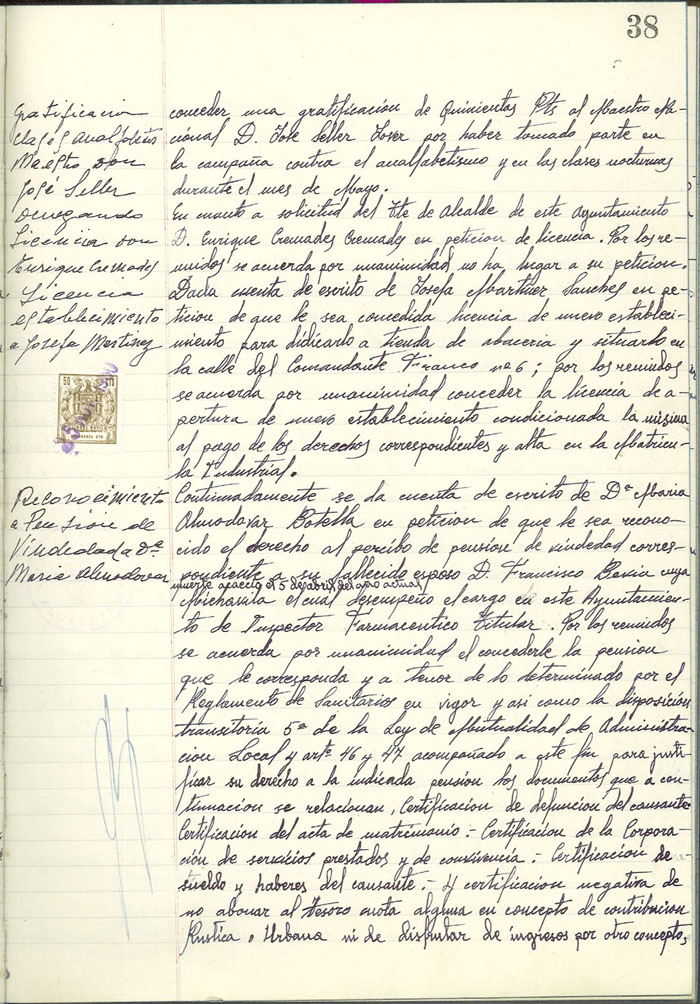 38
Gratificacion
clases analfabetos
Maestro don
José Seller
conceder una gratificacion de Quinientas Pts al Maestro Na-
cional D. Jose Seller Soser por haber tomado parte en
la campaña contra el analfabetismo y en las clases nocturnas
durante el mes de Mayo.
Denegando
Licencia don
Enrique Cremades
En cuanto a solicitud del Tte de Alcalde de este Ayuntamiento
D. Enrique Cremades Cremades en peticion de licencia. Por los re-
unidos se acuerda por unanimidad no ha lugar a su peticion.
Licencia
establecimiento
a Josefa Martinez
Dada cuenta de escrito de Josefa Martinez Sanchez en pe-
ticion de que le sea concedida licencia de nuevo estableci-
miento para didicarlo a tienda de abaceria y situarlo en
la calle del Comandante Franco nº 6; por los reunidos
se acuerda por unanimidad conceder la licencia de a-
pertura de nuevo establecimiento condicionada la misma
al pago de los derechos correspondientes y alta en la Matricu-
la Industrial.
50
Reconocimiento
a Pension de
Viudedad a Dª
Maria Almodovar
Continuadamente se da cuenta de escrito de Dª Maria
Almodovar Botella en peticion de que le sea recono-
cido el derecho al percibo de pension de viudedad corres-
pondiente a su fallecido esposo D. Francisco Bevia cuya
muerte acaecio el 5 de abril del año actual
Michavila el cual desempeño el cargo en este Ayuntamien-
to de Inspector Farmaceutico Titular. Por los reunidos
se acuerda por unanimidad el concederle la pension
que le corresponda y a tenor de lo determinado por el
Reglamento de Sanitarios en vigor y asi como la disposicion
transitoria 5ª de la Ley de Mutualidad de Administra-
cion Local y artº 46 y 47 acompañado a este fin para justi-
ficar su derecho a la indicada pension los documentos que a con-
tinuacion se relacionan, Certificacion de defuncion del causante
Certificacion del acta de matrimonio - Certificacion de la Corpora-
ción de servicios prestados y de convivencia - Certificacion de
sueldo y haberes del causante. - Y certificacion negativa de
no abonar al tesoro cuota alguna en concepto de contribucion
Rustica o Urbana ni de disfrutar de ingresos por otro concepto,